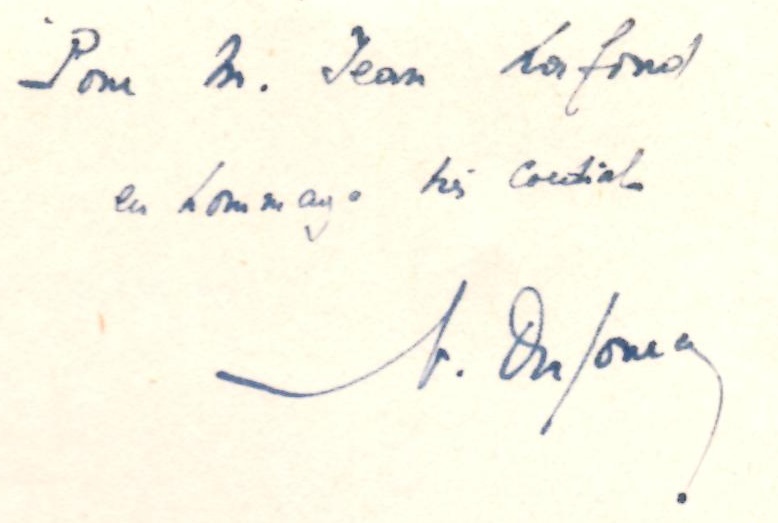 Pour M. Jean Lafond
en hommage très cordial